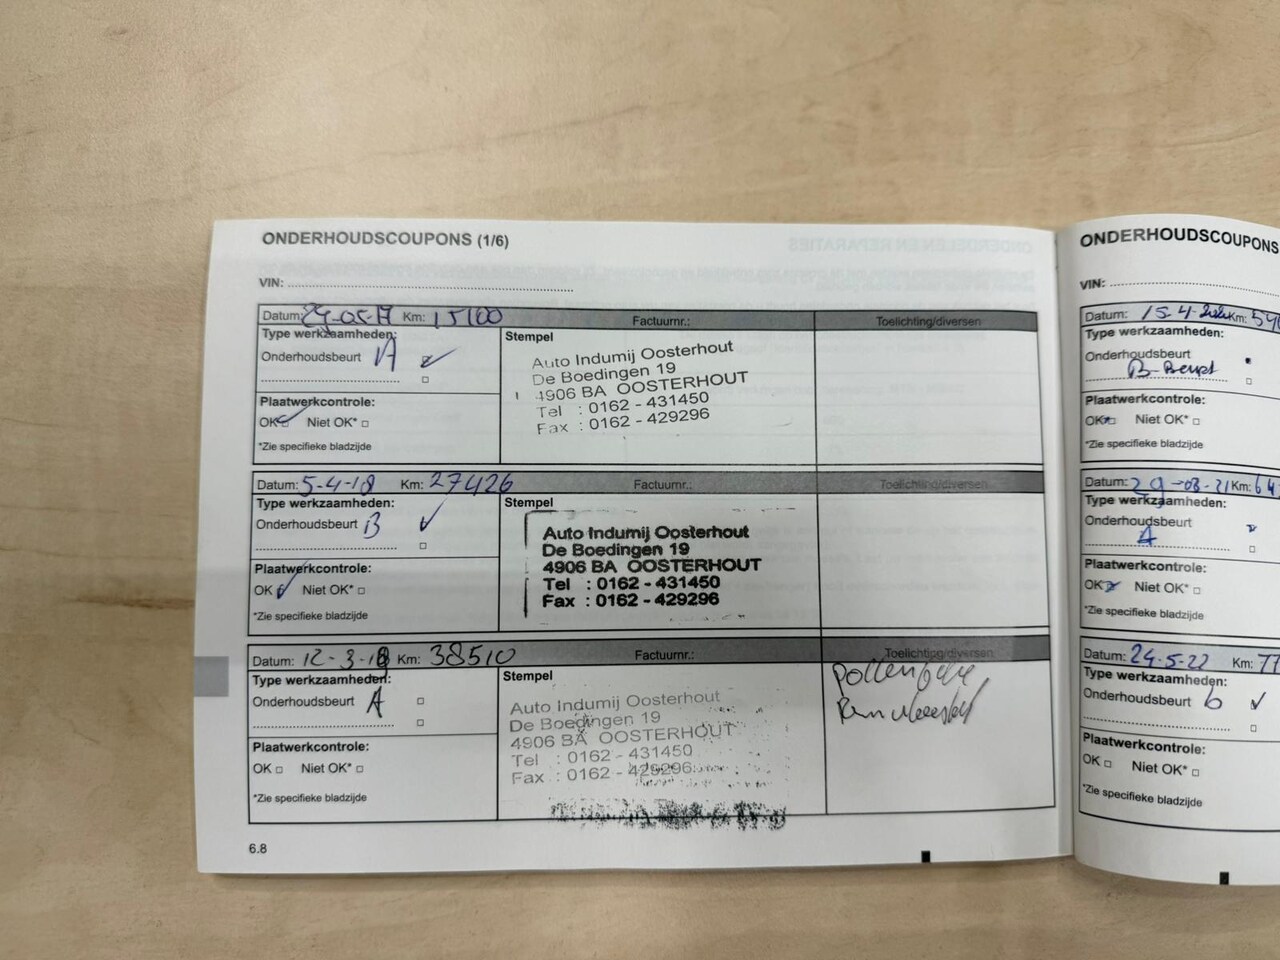 ONDERHOUDSCOUPONS (1/6)
VIN:
Datum: Km: 15100 Factuurnr.: Toelichting/diversen
Type werkzaamheden:
Onderhoudsbeurt A
Plaatwerkcontrole:
OK Niet OK*
*Zie specifieke bladzijde
Stempel
Auto Indumij Oosterhout
De Boedingen 19
4906 BA OOSTERHOUT
Tel : 0162 - 431450
Fax : 0162 - 429296
Datum: 5-4-18 Km: 27426 Factuurnr.: Toelichting/diversen
Type werkzaamheden:
Onderhoudsbeurt B
Plaatwerkcontrole:
OK Niet OK*
*Zie specifieke bladzijde
Stempel
Auto Indumij Oosterhout
De Boedingen 19
4906 BA OOSTERHOUT
Tel : 0162 - 431450
Fax : 0162 - 429296
Datum: Km: 38510 Factuurnr.: Toelichting/diversen
Type werkzaamheden:
Onderhoudsbeurt A
Plaatwerkcontrole:
OK Niet OK*
*Zie specifieke bladzijde
Stempel
Auto Indumij Oosterhout
De Boedingen 19
4906 BA OOSTERHOUT
Tel : 0162 - 431450
Fax : 0162 - 429296
6.8
ONDERHOUDSCOUPONS
VIN:
Datum: Km:
Type werkzaamheden:
Onderhoudsbeurt
B-Beurt
Plaatwerkcontrole:
OK Niet OK*
*Zie specifieke bladzijde
Datum: 29-03-21 Km:
Type werkzaamheden:
Onderhoudsbeurt
A
Plaatwerkcontrole:
OK Niet OK*
*Zie specifieke bladzijde
Datum: 24-5-22 Km:
Type werkzaamheden:
Onderhoudsbeurt b
Plaatwerkcontrole:
OK Niet OK*
*Zie specifieke bladzijde